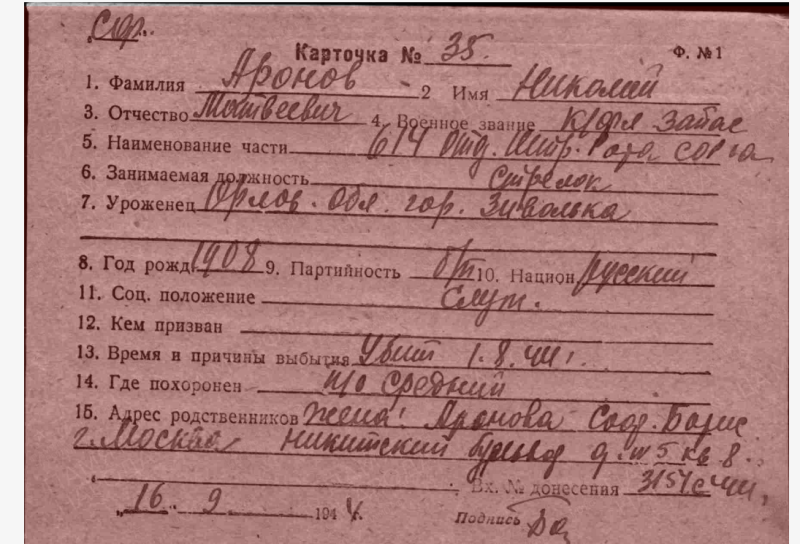 Сфр.
Карточка № 35. Ф. №1
1. Фамилия Аронов 2 Имя Николай
3. Отчество Матвеевич 4. Военное звание к/ запас
5. Наименование части 614 Отд. Штр. Рота
6. Занимаемая должность стрелок
7. Уроженец Орлов. обл. гор.
8. Год рожд. 1908 9. Партийность б/п 10. Национ. русский
11. Соц. положение служ.
12. Кем призван
13. Время и причины выбытия Убит 1.8.44г.
14. Где похоронен п/о Средний
15. Адрес родственников жена: Аронова Борис
г. Москва Никитский бульвар д. № 5 кв 8.
Вх. № донесения 3157с 44г.
„16„ 9 1944.
Подпись